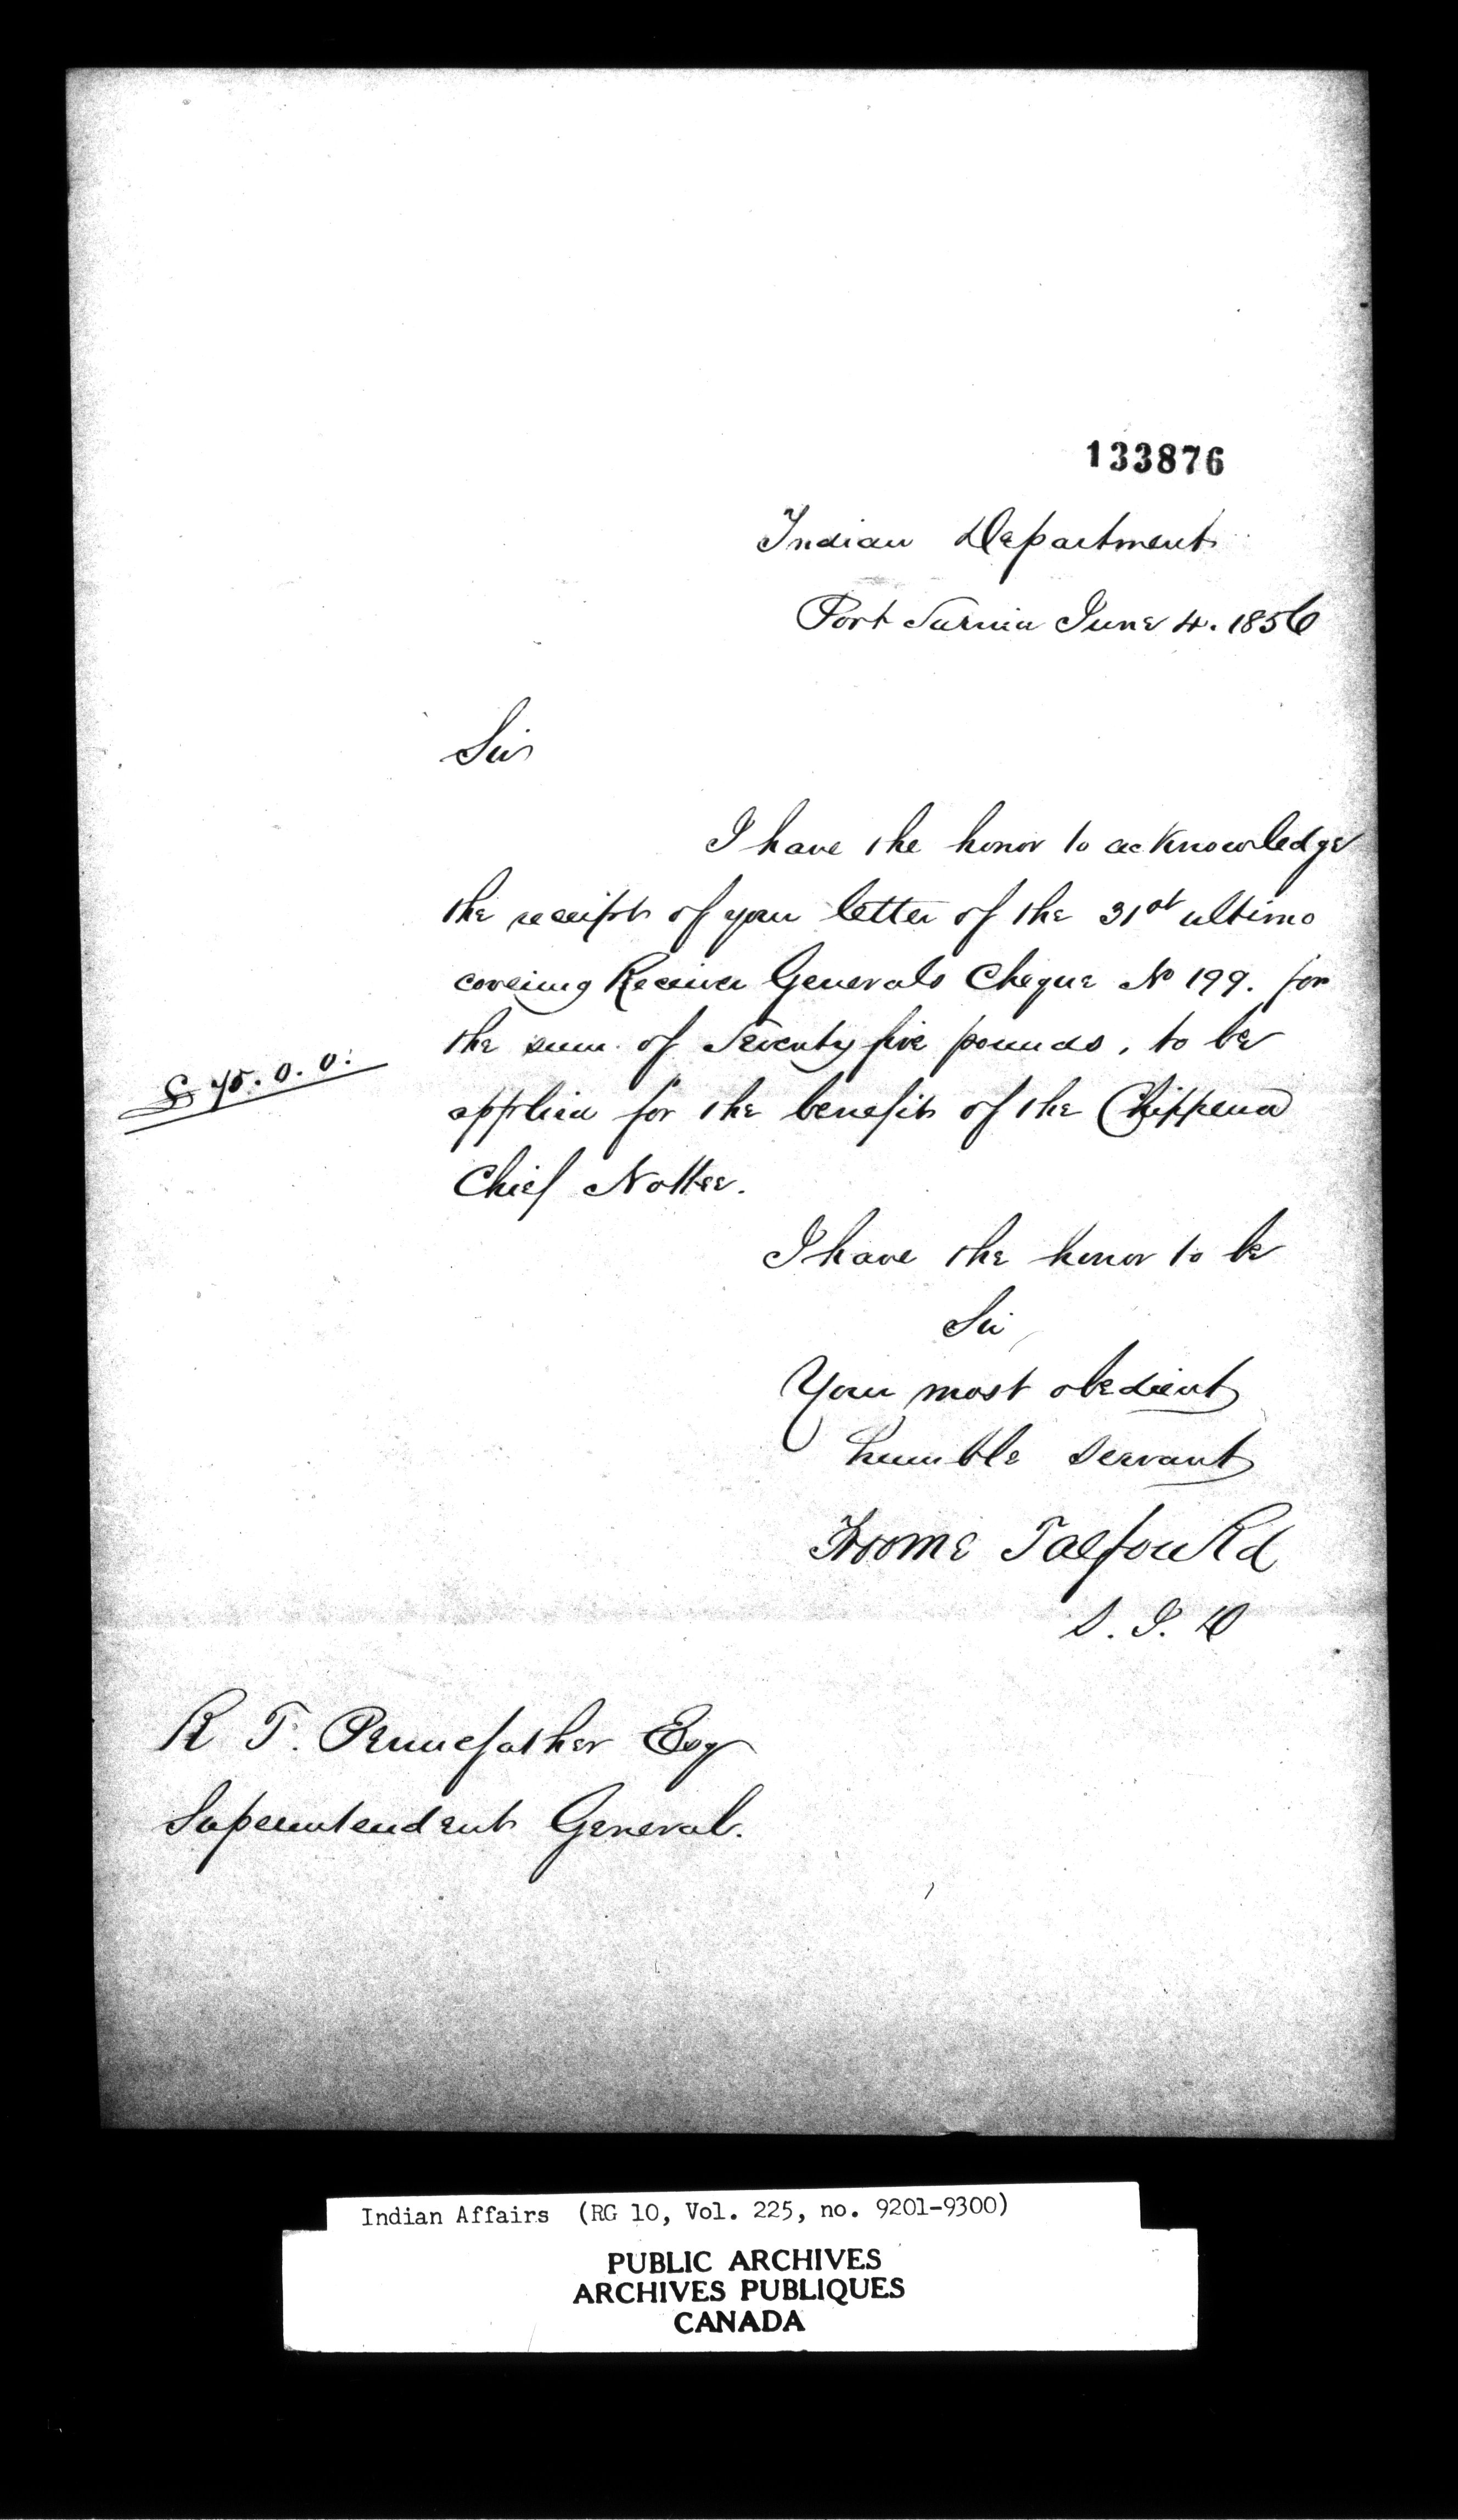 133876
Indian Department
Port Sarnia June 4. 1856
Sir
I have the honor to acknowledge
the receipt of your letter of the 31st ultimo
covering Receiver Generals Cheque No 199. for
the sum of Seventy five pounds, to be
£75.0.0.
applied for the benefit of the Chippewa
Chief Nottee.
I have the honor to be
Sir
Your most obedient
humble servant
Froome Talfourd
S. I. D
R T. Pennefather Esq
Superintendent General.
Indian Affairs (RG 10, Vol. 225, no. 9201-9300)
PUBLIC ARCHIVES
ARCHIVES PUBLIQUES
CANADA